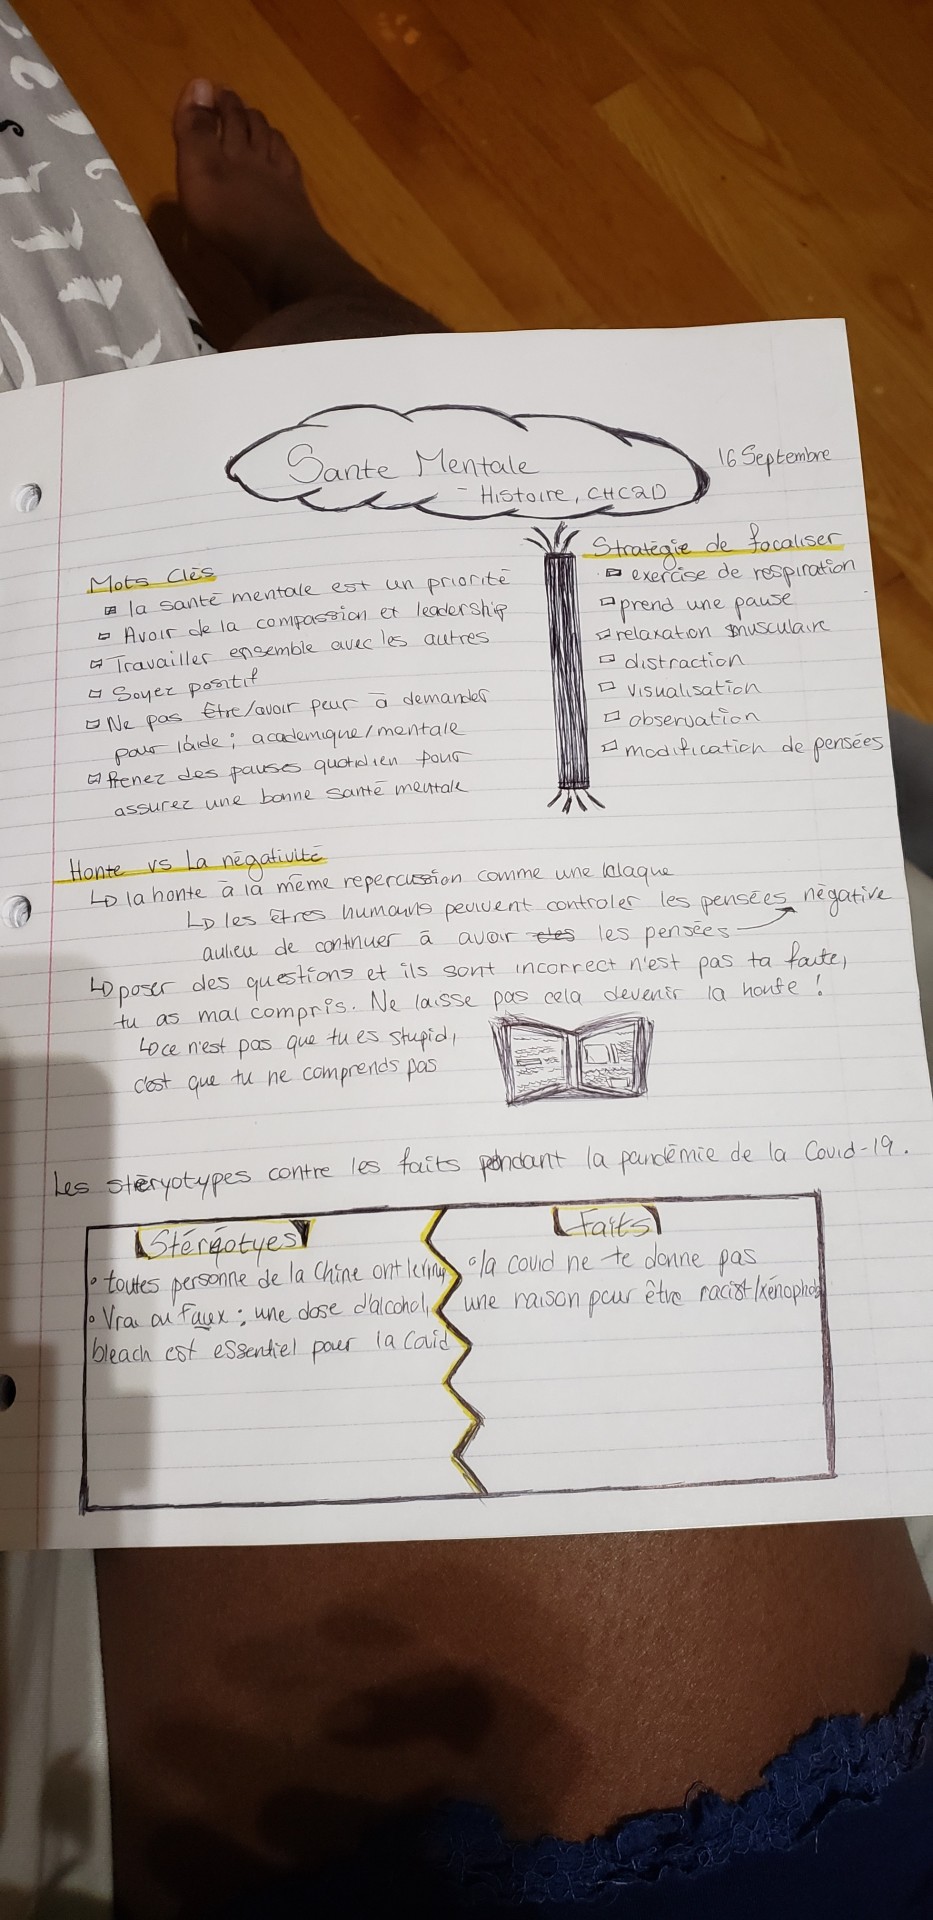 Sante Mentale
- Histoire, CHC2D
16 Septembre
Mots Clés
la santé mentale est un priorité
Avoir de la compassion et leadership
Travailler ensemble avec les autres
Soyez positif
Ne pas être/avoir peur à demander
pour l'aide; academique/mentale
Prenez des pauses quotidien pour
assurez une bonne santé mentale
Stratégie de focaliser
exercise de respiration
prend une pause
relaxation musculaire
distraction
visualisation
observation
modification de pensées
Honte vs La négativité
la honte à la même repercussion comme une claque
les êtres humains peuvent controler les pensées négative
aulieu de continuer à avoir les pensées
poser des questions et ils sont incorrect n'est pas ta faute,
tu as mal compris. Ne laisse pas cela devenir la honte!
ce n'est pas que tu es stupid,
c'est que tu ne comprends pas
Les stéryotypes contre les faits pendant la pandémie de la Covid-19.
Stéréotyes
• toutes personne de la Chine ont
• Vrai ou Faux: une dose d'alcohol,
bleach est essentiel pour la
Faits
• la covid ne te donne pas
une raison pour être racist/xénophobe